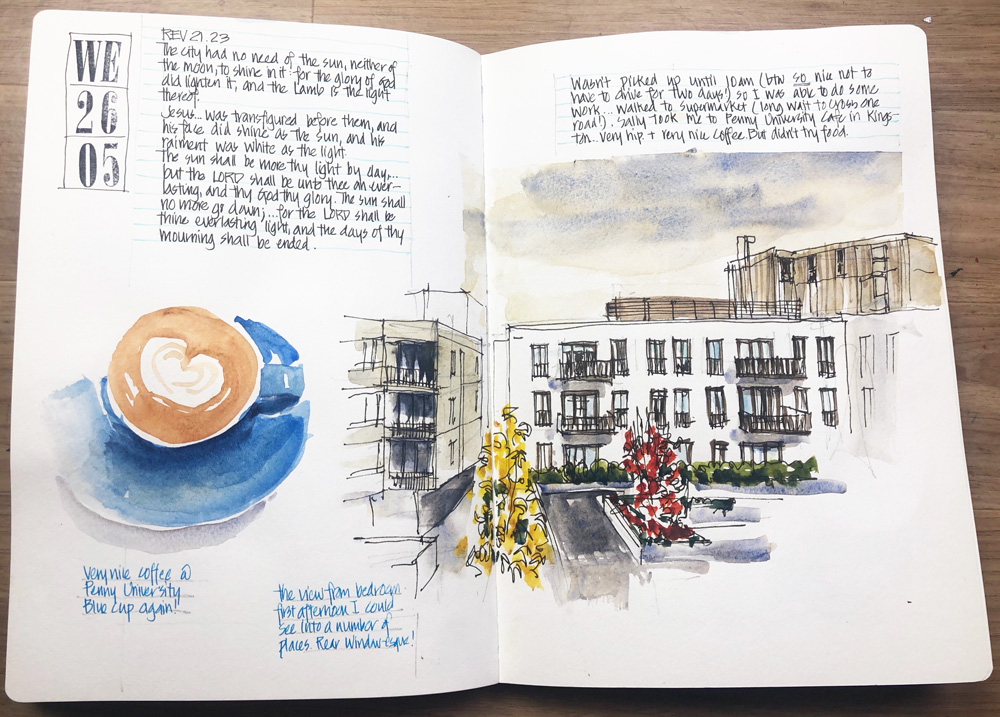 WE
26
05
REV 21.23
The city had no need of the sun, neither of
the moon, to shine in it: for the glory of God
did lighten it, and the Lamb is the light
thereof.
Jesus... was transfigured before them, and
his face did shine as the sun, and his
raiment was white as the light.
The sun shall be more thy light by day,...
but the LORD shall be unto thee an ever-
lasting, and thy God thy glory. The sun shall
no more go down;... for the LORD shall be
thine everlasting light, and the days of thy
mourning shall be ended.
Very nice coffee @
Penny University
Blue cup again!
the view from bedroom
first afternoon. I could
see into a number of
places. Rear Window-esque!
Wasn't picked up until 10am (btw so nice not to
have to drive for two days!) so I was able to do some
work... walked to supermarket (long wait to cross one
road!). Sally took me to Penny University Cafe in Kings-
ton... very hip + very nice coffee. But didn't try food.